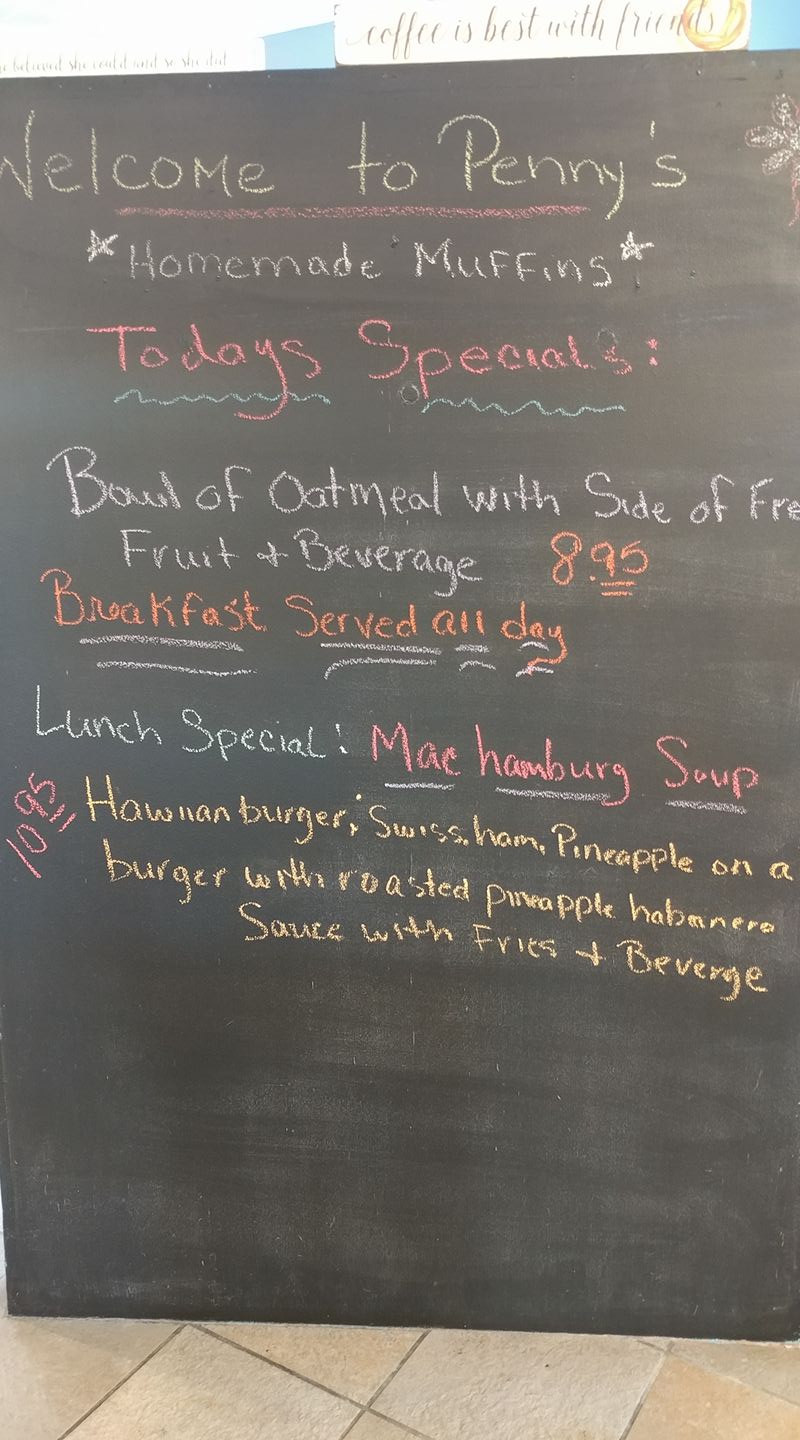 coffee is best with friends
she believed she could and so she did
Welcome to Penny's
*Homemade Muffins*
Todays Specials:
Bowl of Oatmeal with Side of Fre
Fruit + Beverage 8.95
Breakfast Served all day
Lunch Special: Mac hamburg Soup
10.95 Hawiian burger; Swiss, ham, Pineapple on a
burger with roasted pineapple habanero
Sauce with Fries + Beverge